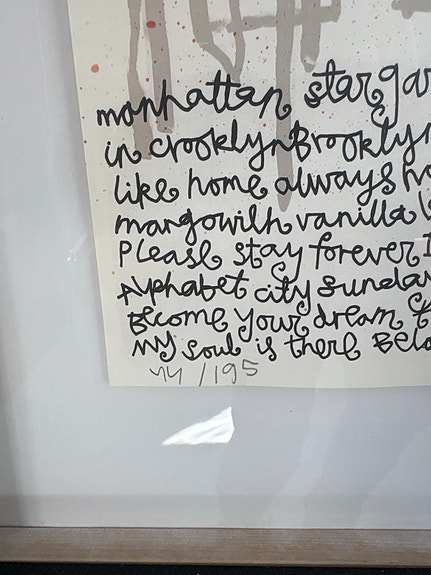 manhattan stargar
in crooklyn Brooklyn
like home always ho
margowilh vanilla
Please stay forever I
Alphabet city Sunday
Become your dream
my soul is there Belo
44/195